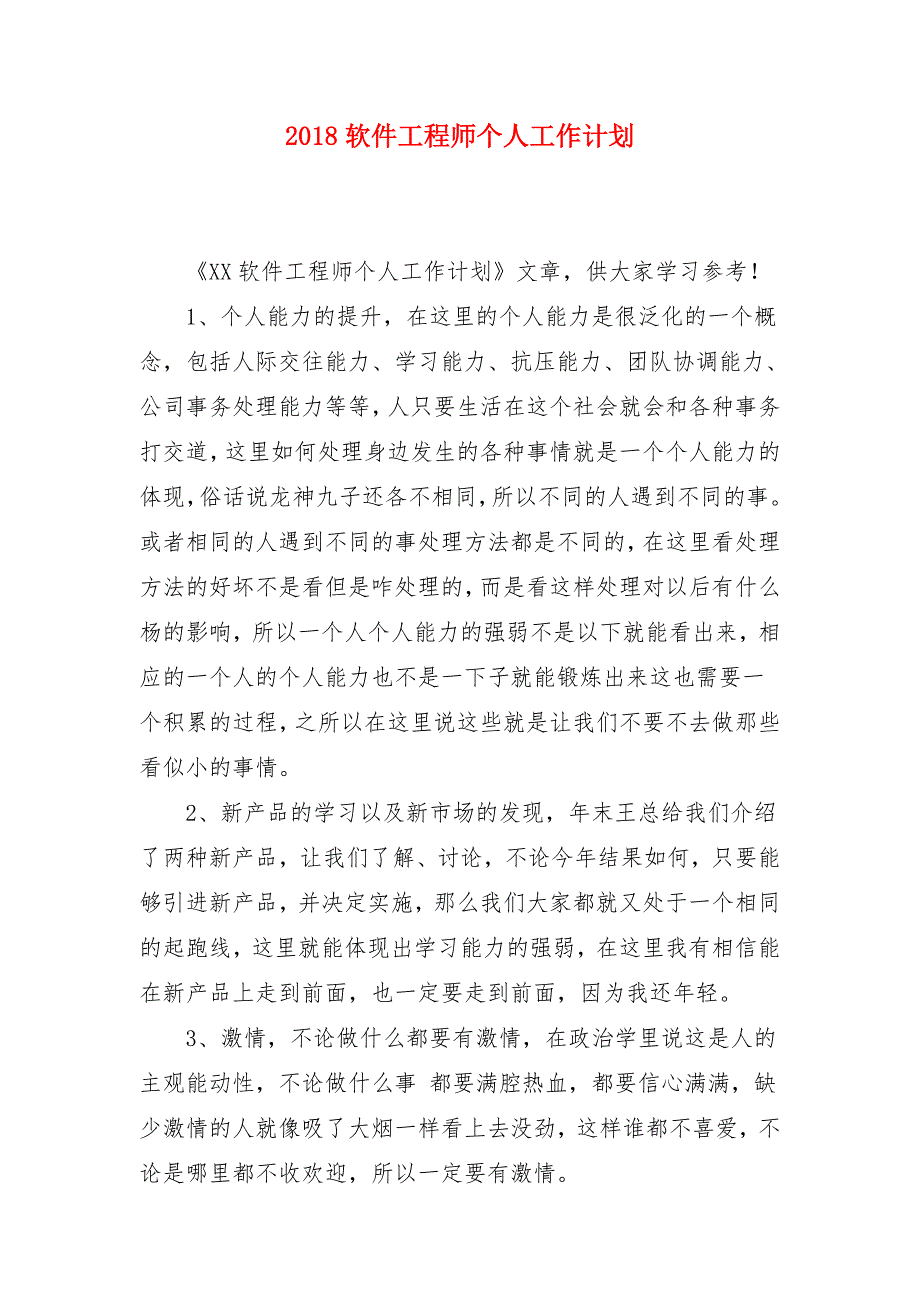 2018软件工程师个人工作计划
《XX软件工程师个人工作计划》文章，供大家学习参考！
1、个人能力的提升，在这里的个人能力是很泛化的一个概
念，包括人际交往能力、学习能力、抗压能力、团队协调能力、
公司事务处理能力等等，人只要生活在这个社会就会和各种事务
打交道，这里如何处理身边发生的各种事情就是一个个人能力的
体现，俗话说龙神九子还各不相同，所以不同的人遇到不同的事。
或者相同的人遇到不同的事处理方法都是不同的，在这里看处理
方法的好坏不是看但是咋处理的，而是看这样处理对以后有什么
杨的影响，所以一个人个人能力的强弱不是以下就能看出来，相
应的一个人的个人能力也不是一下子就能锻炼出来这也需要一
个积累的过程，之所以在这里说这些就是让我们不要不去做那些
看似小的事情。
2、新产品的学习以及新市场的发现，年末王总给我们介绍
了两种新产品，让我们了解、讨论，不论今年结果如何，只要能
够引进新产品，并决定实施，那么我们大家都就又处于一个相同
的起跑线，这里就能体现出学习能力的强弱，在这里我有相信能
在新产品上走到前面，也一定要走到前面，因为我还年轻。
3、激情，不论做什么都要有激情，在政治学里说这是人的
主观能动性，不论做什么事 都要满腔热血，都要信心满满，缺
少激情的人就像吸了大烟一样看上去没劲，这样谁都不喜爱，不
论是哪里都不收欢迎，所以一定要有激情。